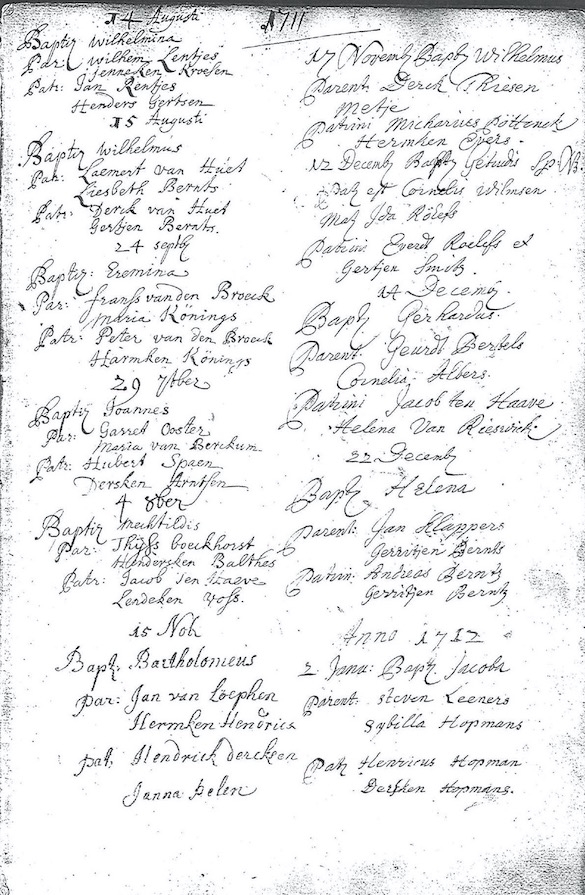 1711
14 Augusti
Baptiz Wilhelmina
Par: Wilhem Lentjes
Jenneken Kroesen
Patr: Jan Rentjes
Henders Gertsen
15 Augusti
Baptiz Wilhelmus
Par: Laemert van Huet
Liesbeth Bernts
Patr: Derck van Huet
Gertjen Bernts.
24 septb
Baptiz: Eremina
Par: franss vanden Broeck
Maria Könings
Patr: Peter van den Broeck
Harmken Könings
29 7tber
Baptiz Joannes
Par: Garret Ooster
Maria van Berckum
Patr: Hubert Spaen
Dersken Arntsen
4 8ber
Baptiz Mechtildis
Par: Thijss boeckhorst
Handersken Balthes
Patr: Jacob Ten Haeve
Lendeken Voss.
15 Nob
Bapt: Bartholomeus
Par: Jan van Loephen
Hermken Hendricx
Pat: Hendrick dercksen
Janna Belen
17 Novemb Bapt Wilhelmus
Parent: Derck Thiesen
Metje
Patrini Micharius Pottenck
Hermken Evers.
12 Decemb Bapt Getudis
est Cornelius Wilmsen
Mat Ida Röless
Patrini Everdt Roeless et
Gertjen Smits.
14 Decemb.
Bapt Gerhardus.
Parent: Geurdt Bertels
Cornelia Albers.
Patrini Jacob ten Haave
Helena Van Rieswick
22 Decemb
Bapt Helena
Parent: Jan Klappers
Gerritjen Bernts
Patrin: Andreas Bernts
Gerritjen Bernts
Anno 1712
2 Janu: Bapt Jacobs
Parent: Steven Leeners
Sybilla Hopmans
Pat Henricus Hopman
Dersken Hopmans.